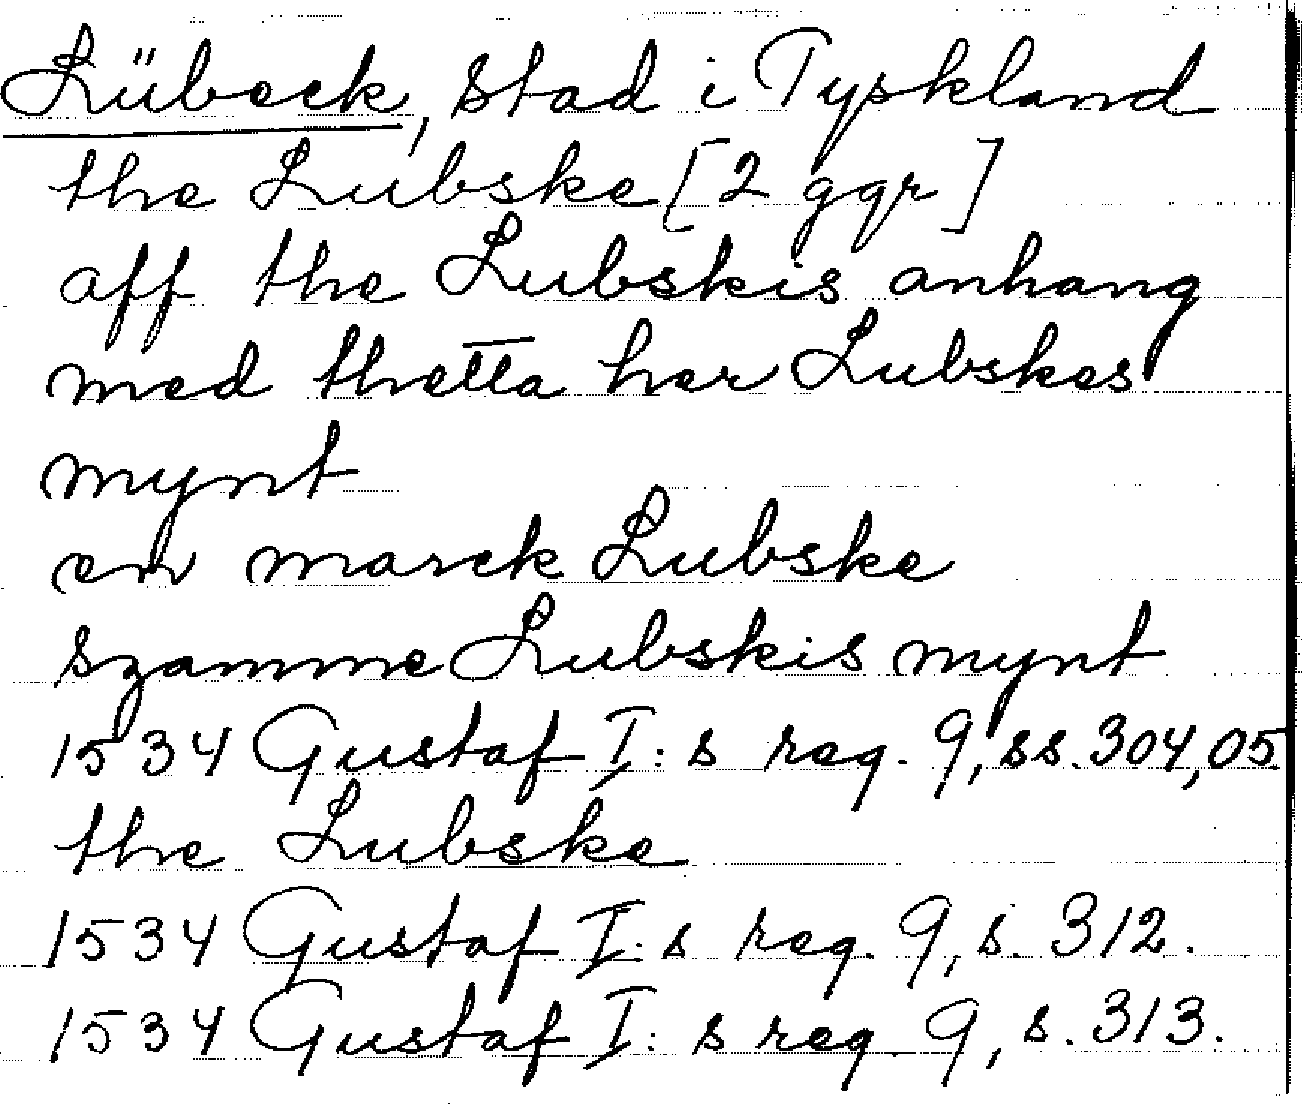 Lübeck, stad i Tyskland
the Lubske [2 ggr]
aff the Lubskis anhang
med thetta her Lubskes
mynt
en marck Lubske
szamme Lubskis mynt
1534 Gustaf I:s reg. 9, ss. 304,05
the Lubske
1534 Gustaf I:s reg. 9, s. 312.
1534 Gustaf I:s reg 9, s. 313.